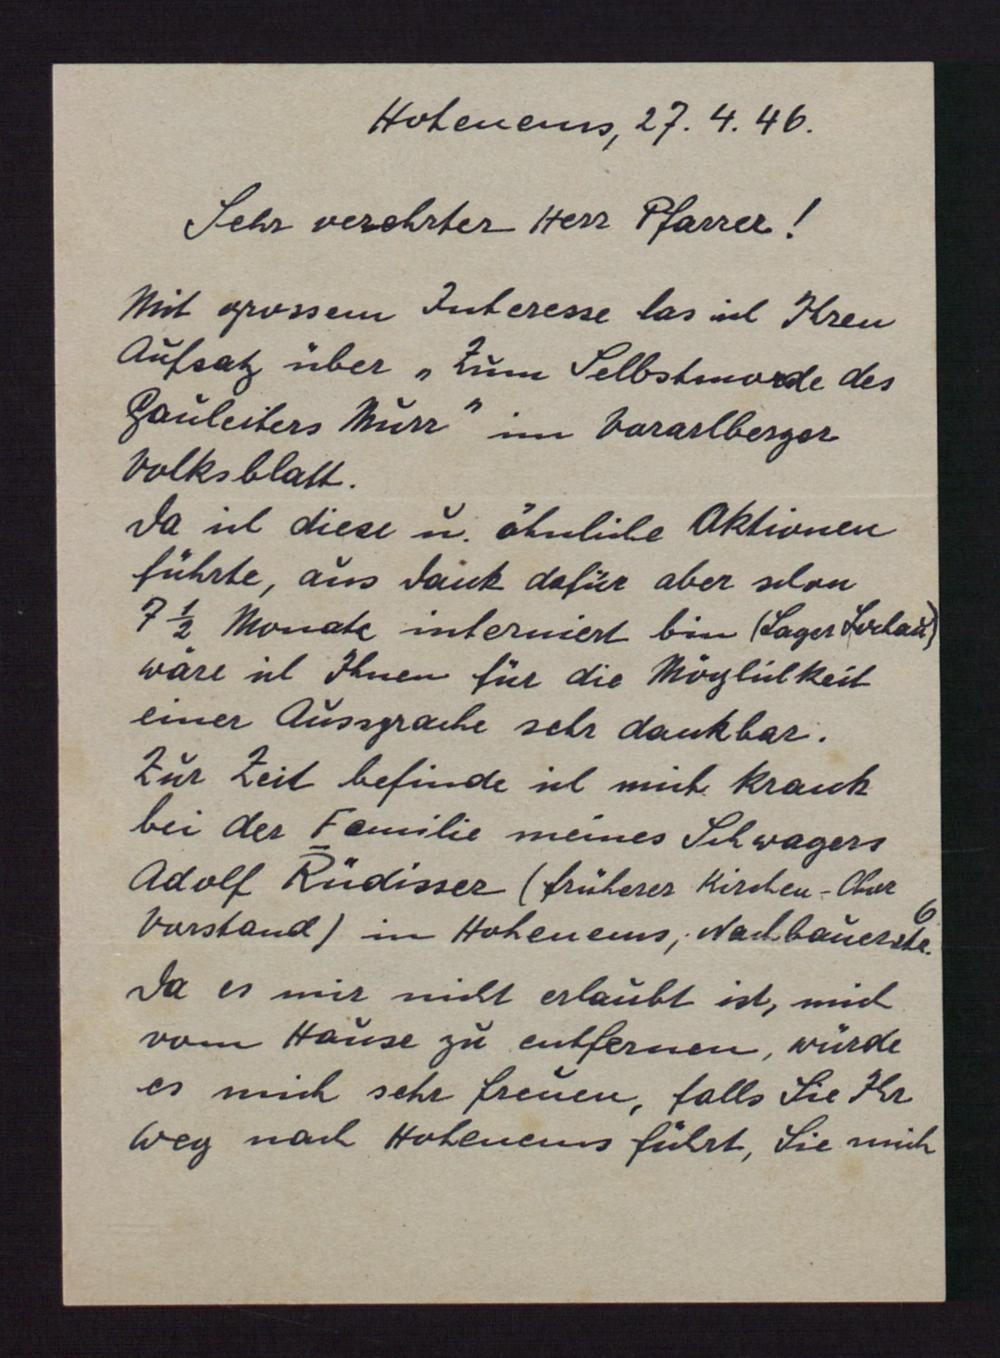 Hohenems, 27. 4. 46.
Sehr verehrter Herr Pfarrer!
Mit grossem Interesse las ich Ihren
Aufsatz über „Zum Selbstmorde des
Gauleiters Murr" im Vorarlberger
Volksblatt.
Da ich diese u. ähnliche Aktionen
führte, aus Dank dafür aber schon
7 1/2 Monate interniert bin (Lager Lochau)
wäre ich Ihnen für die Möglichkeit
einer Aussprache sehr dankbar.
Zur Zeit befinde ich mich krank
bei der Familie meines Schwagers
Adolf Rüdisser (früherer Kirchen-Chor
Vorstand) in Hohenems, Nachbauerstr. 6
Da es mir nicht erlaubt ist, mich
vom Hause zu entfernen, würde
es mich sehr freuen, falls Sie Ihr
Weg nach Hohenems führt, Sie mich